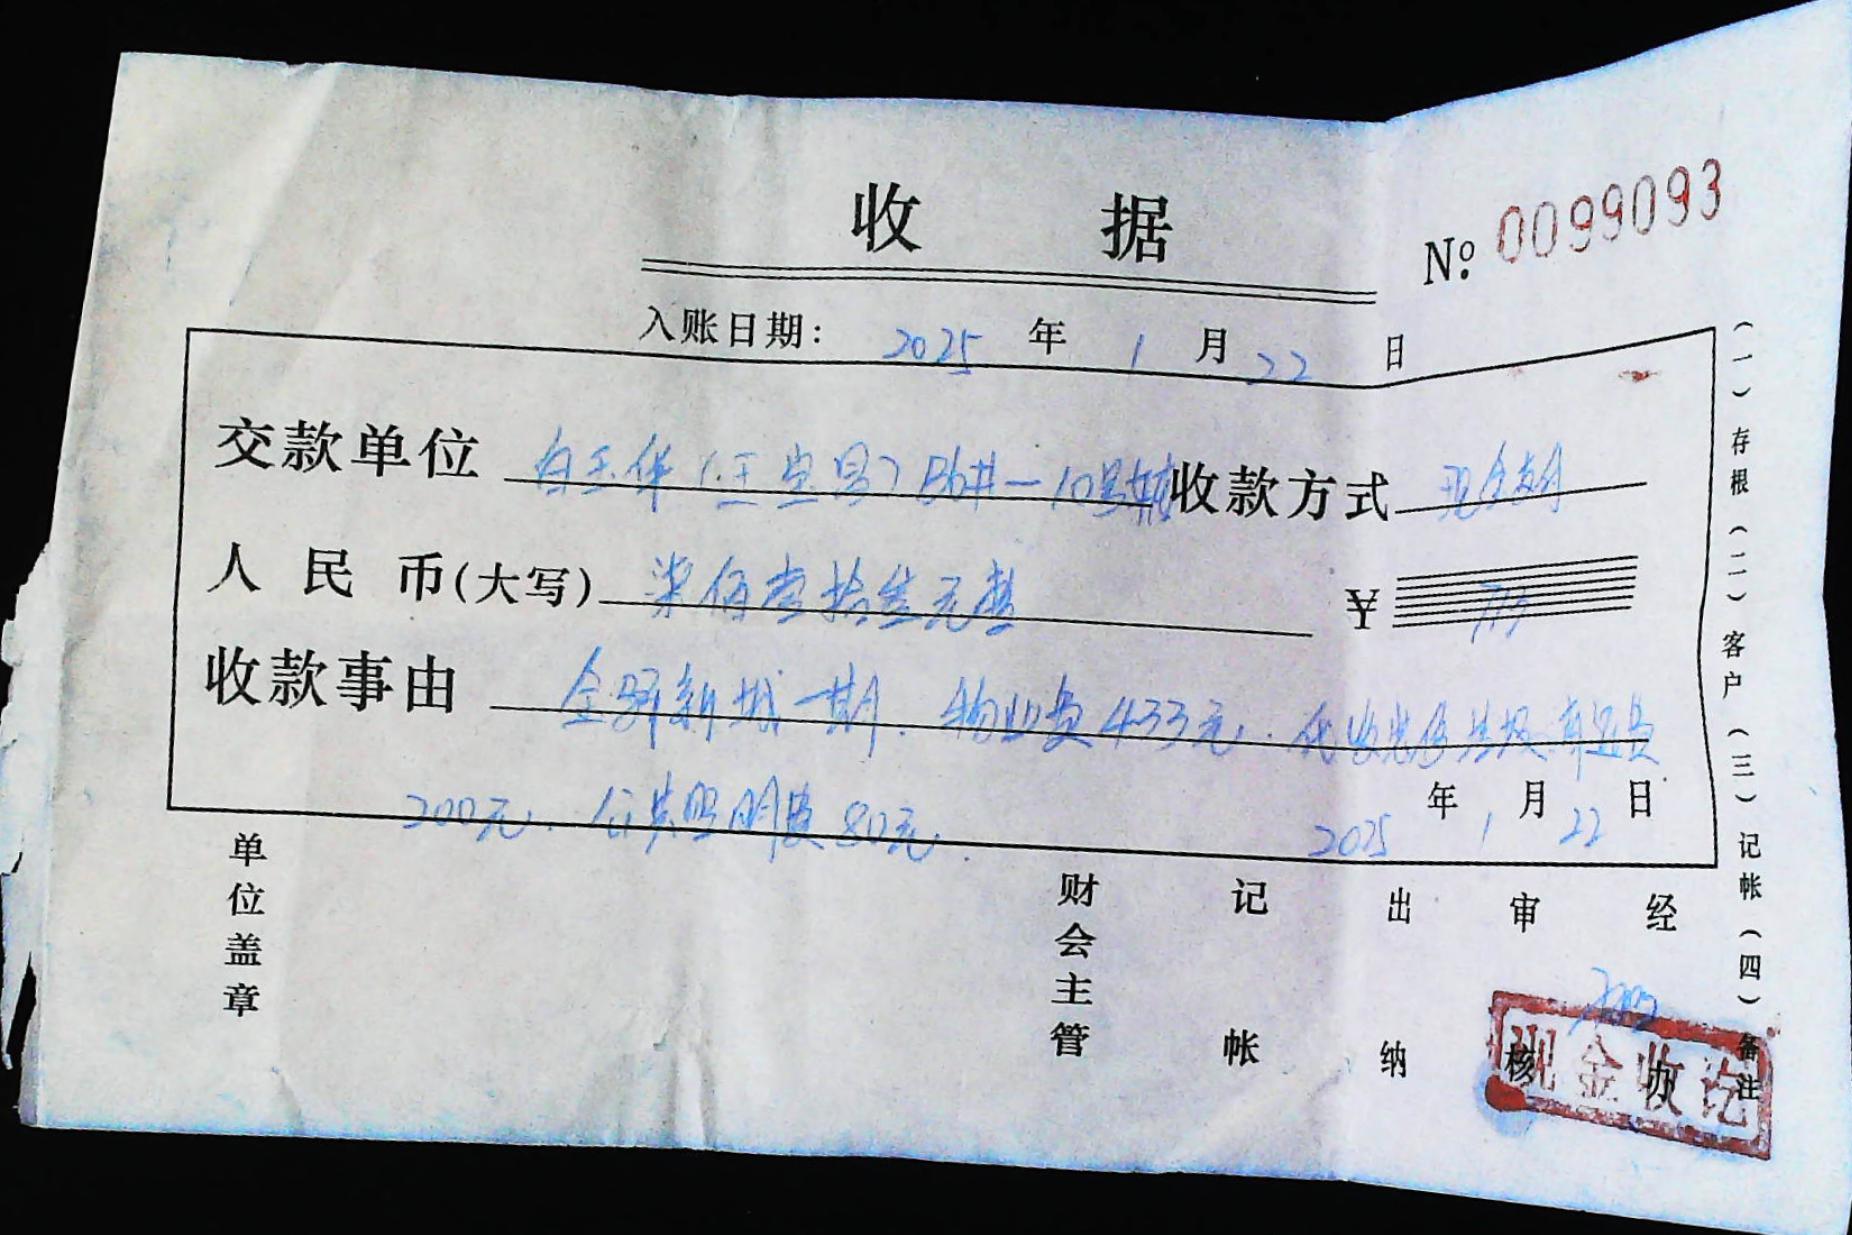 收 据
№ 0099093
入账日期： 2025 年 1 月 22 日
交款单位 白玉华（王 号） 10号 收款方式 现金
人民币(大写) 柒佰壹拾 元整 ¥ 713
收款事由 新城一期. 物业费433元. 代收 垃圾 费
200元. 公共照明费80元.
2025 年 1 月 22 日
单位盖章 财会主管 记帐 出纳 审核 经办
现金收讫
(一)存根(二)客户(三)记帐(四)备注